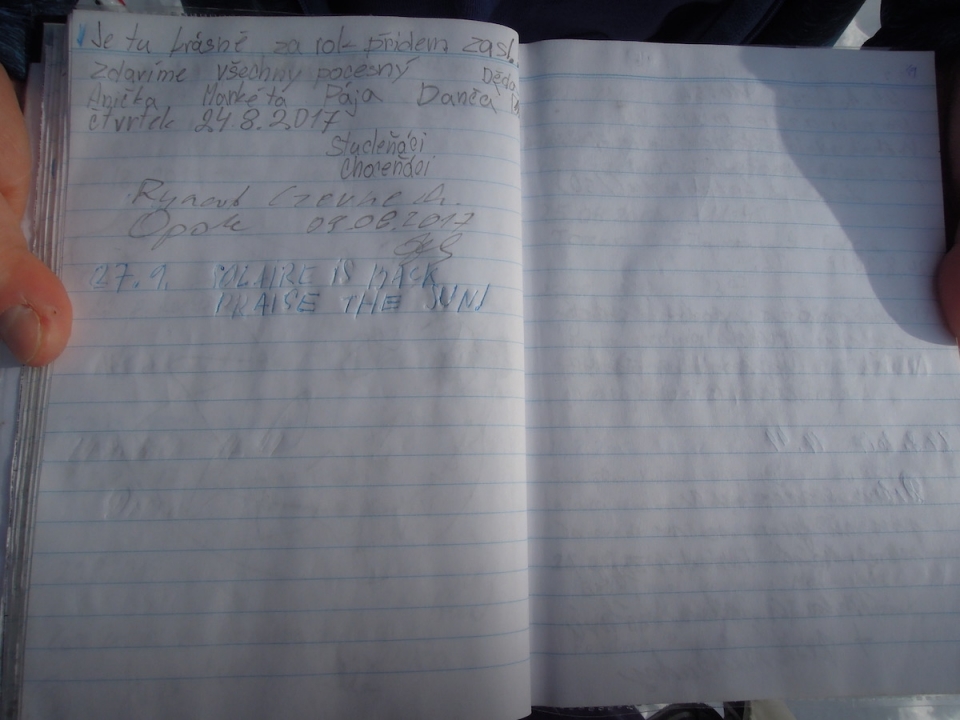 Je tu krásně za rok přidem zas
Zdavíme všechny pocesný Děda
Anička Markéta Pája Danča
čtvrtek 24.8.2017
Studeňáci
Choceňáci
Opole 09.08.2017
27.9. SOLAIRE IS BACK
PRAISE THE SUN!